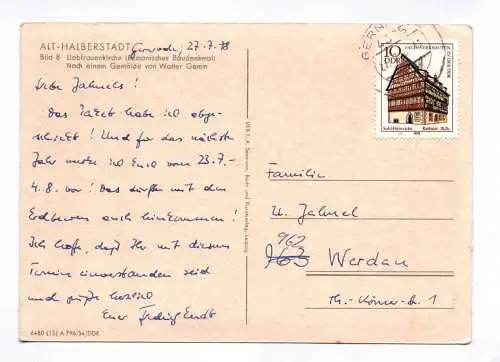 ALT-HALBERSTADT
Bild 8 Liebfrauenkirche (Romanisches Baudenkmal)
Nach einem Gemälde von Walter Gemm
27.7.78
Liebe Jahnels!
Das Paket habe ich abge-
schickt! Und für das nächste
Jahr merke ich Euch vom 23.7.-
4.8. vor! Das dürfte mit den
Erdbeeren auch hinkommen!
Ich hoffe, daß Ihr mit diesem
Termin einverstanden seid
und grüße herzlich
Euer
6480 (15) A 796/54/DDR
VEB E. A. Seemann, Buch- und Kunstverlag, Leipzig
GERN
10
DDR
FACHWERKBAUTEN
IN DER DDR
Rathaus
Familie
K. Jahnel
962
963 Werdau
Th.-Körner-Str. 1